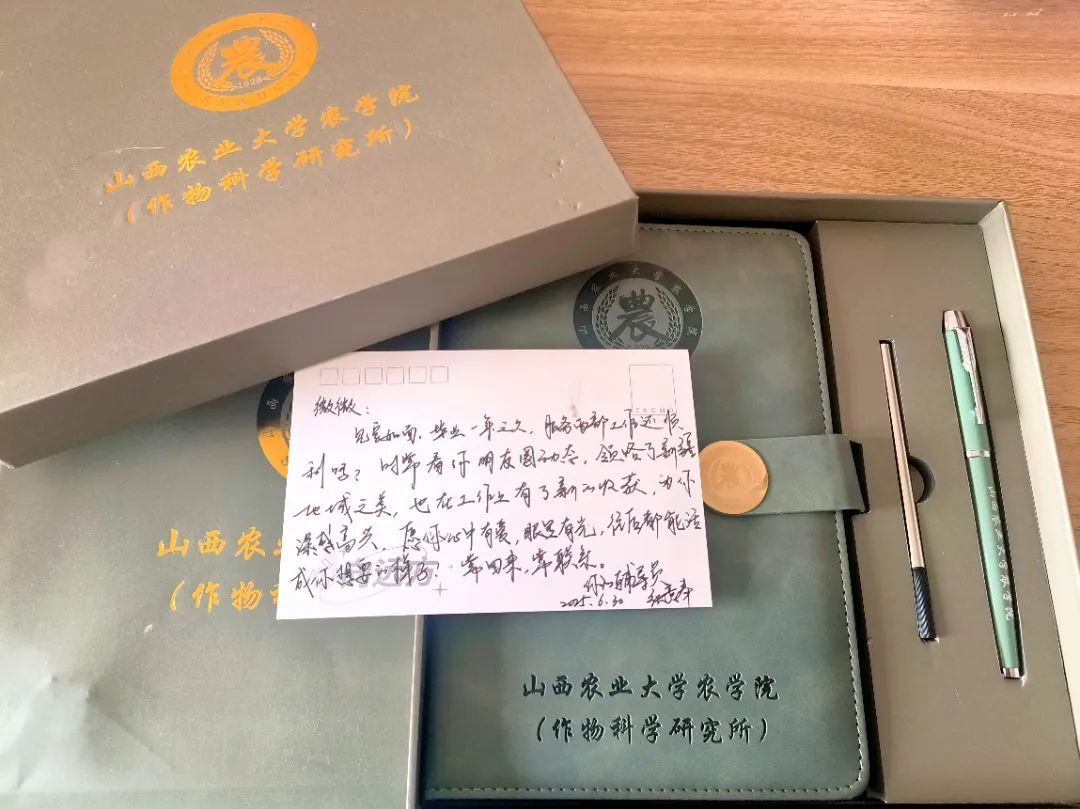 1928
山西农业大学农学院
(作物科学研究所)
山西农业大学农学院
農
微微：
见字如面，毕业一年之久，服务西部工作还顺
利吗？时常看你朋友圈动态，领略了新疆
地域之美，也在工作上有了新的收获，为你
深感高兴，愿你心中有爱，眼里有光，往后都能活
成你想要的样子！常回来，常联系。
你的辅导员
2025.6.30
山西农
(作物
山西农业大学农学院
(作物科学研究所)